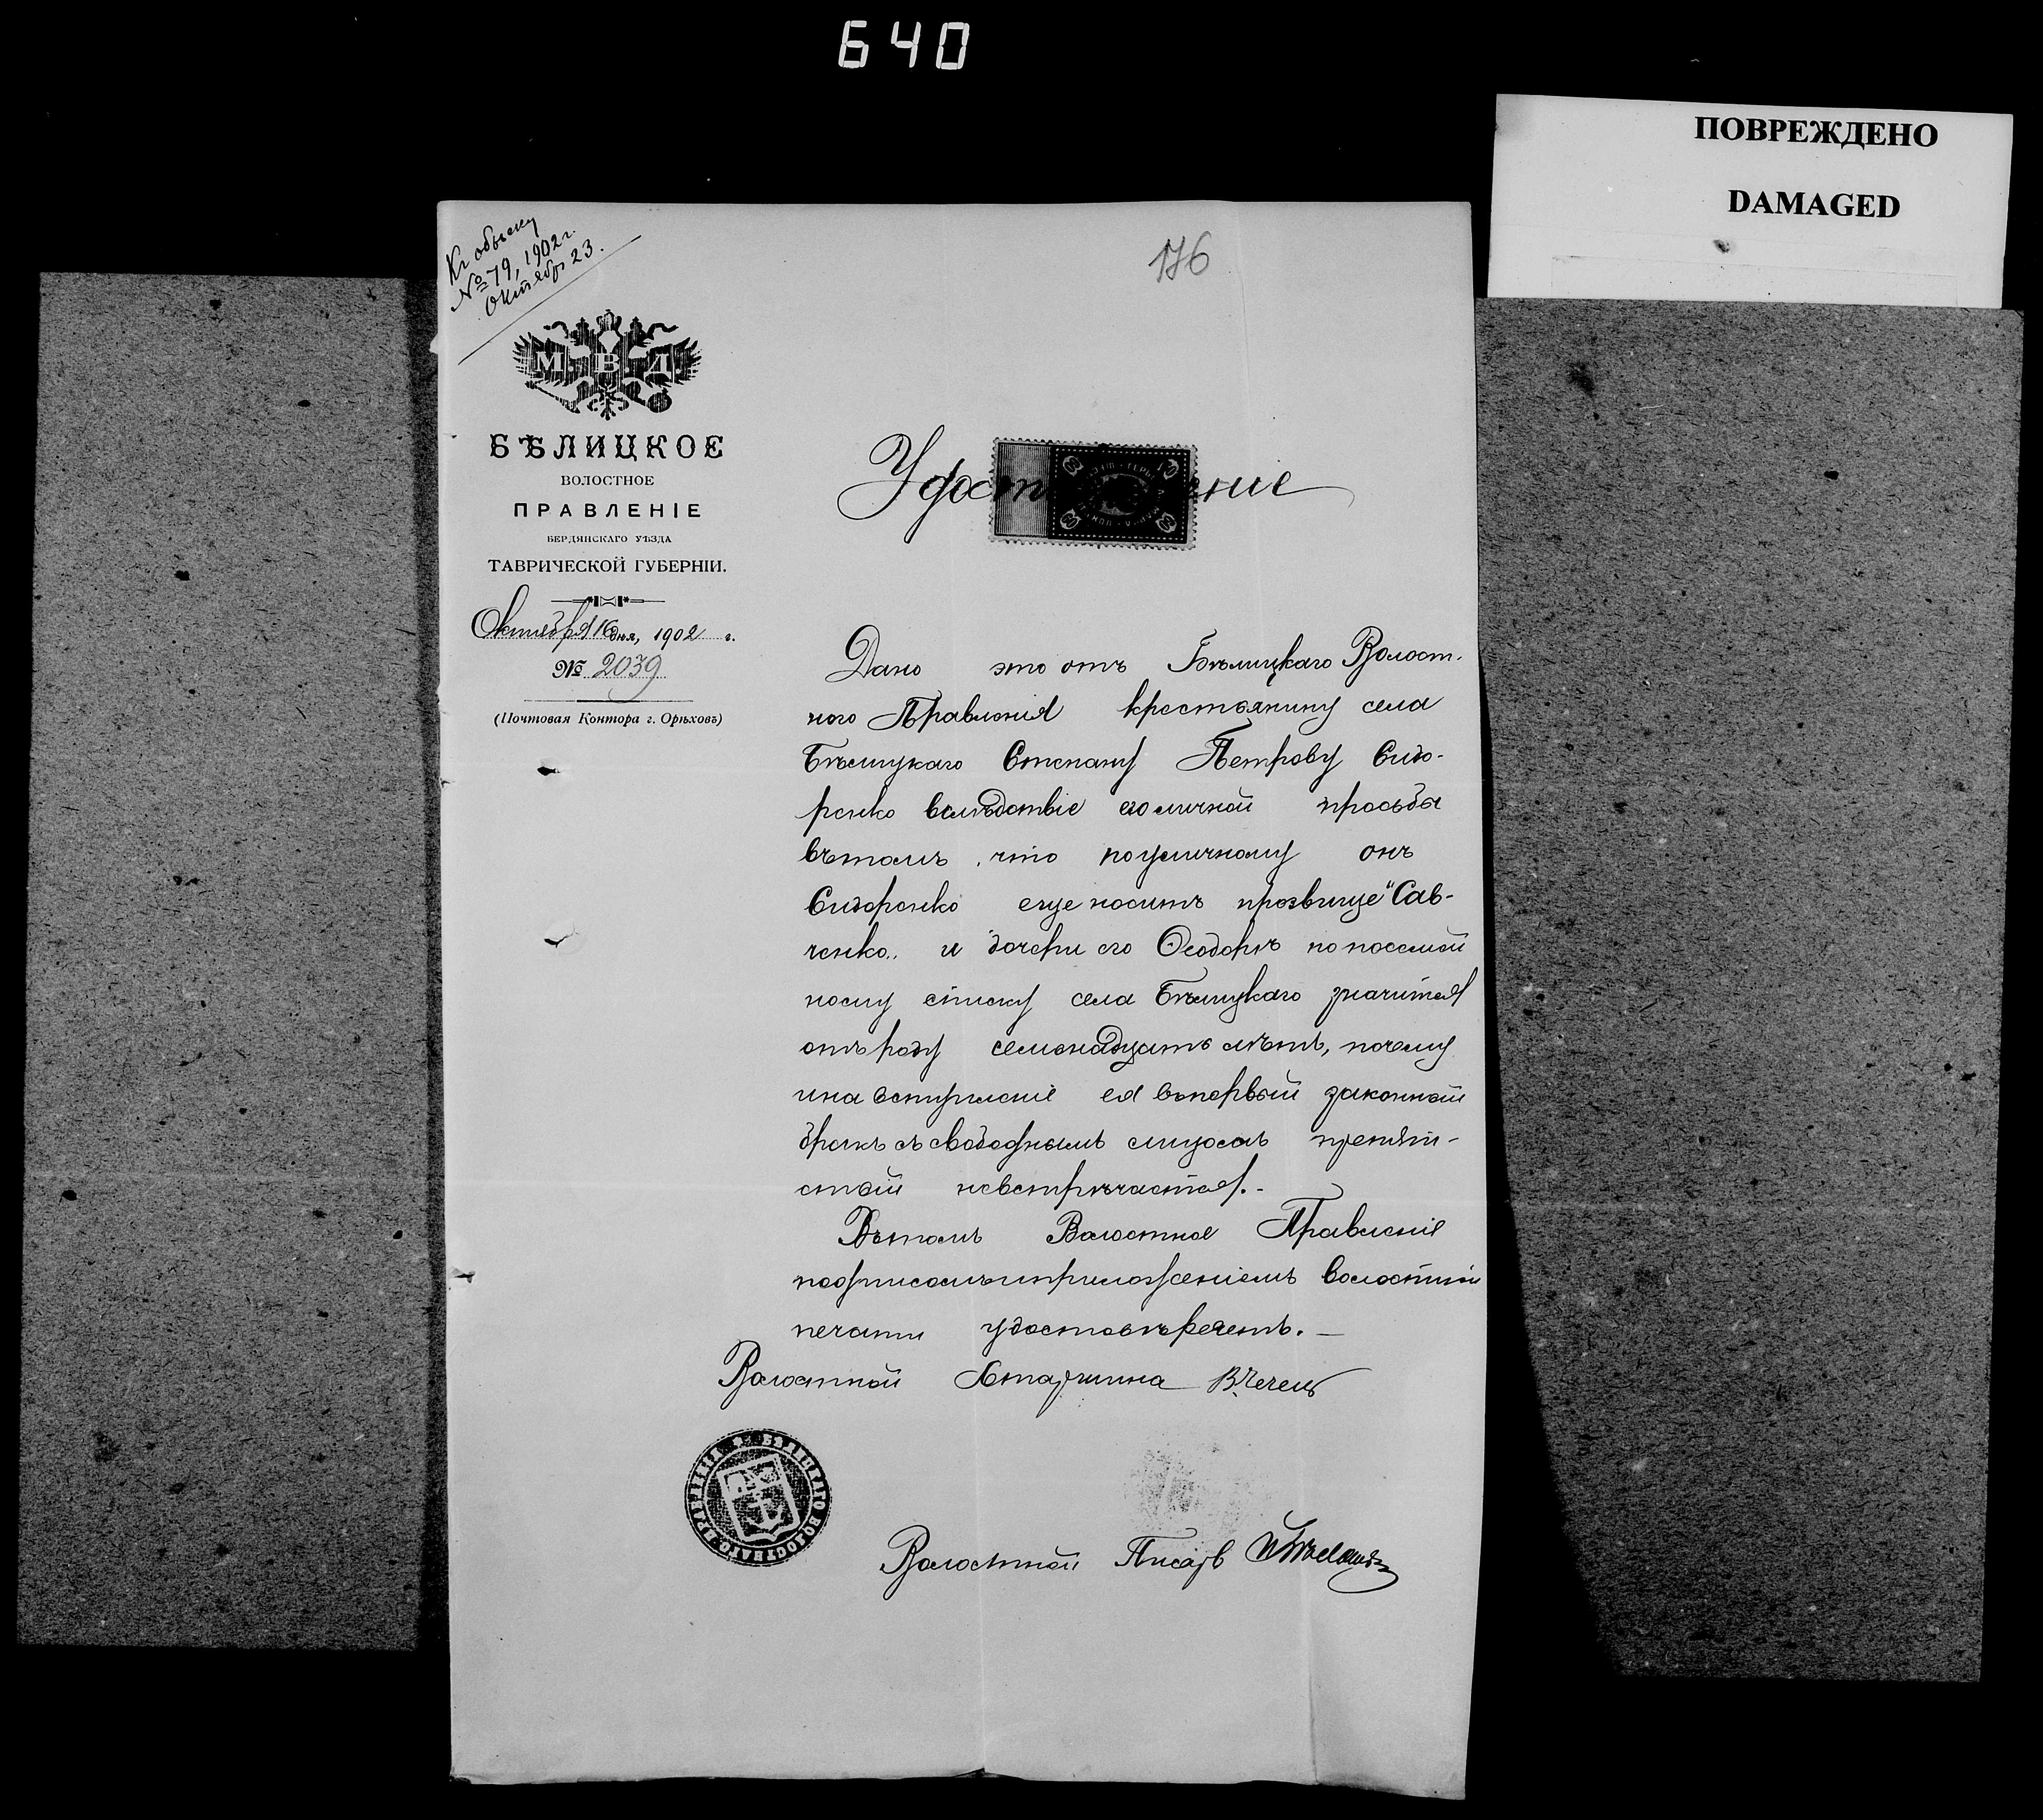 640
ПОВРЕЖДЕНО
DAMAGED
Къ обыску
№ 79, 1902 г.
Октября 23.
176
М В Д
БѢЛИЦКОЕ
ВОЛОСТНОЕ
ПРАВЛЕНІЕ
БЕРДЯНСКАГО УѢЗДА
ТАВРИЧЕСКОЙ ГУБЕРНІИ.
Октября 16 дня, 1902 г.
№ 2039
(Почтовая Контора г. Орѣховъ)
Удост ніе
Дано это отъ Бѣлицкаго Волост-
ного Правленія крестьянину села
Бѣлицкаго Степану Петрову Сидо-
ренко вслѣдствіе его личной просьбы
въ томъ, что поуличному онъ
Сидоренко еще носитъ прозвище "Сав-
ченко" и дочери его Ѳеодорѣ по посемей
ному списку села Бѣлицкаго значится
отъ роду семьнадцать лѣтъ, почему
и на вступленіе ея въ первый законный
бракъ съ свободнымъ лицомъ препят-
ствій не встрѣчается.-
Въ томъ Волостное Правленіе
подписомъ и приложеніемъ волостной
печати удостовѣряетъ. —
Волостной Старшина В. Чечель
БѢЛИЦКАГО ВОЛОСТНАГО ПРАВЛЕНІЯ
Волостной Писарь